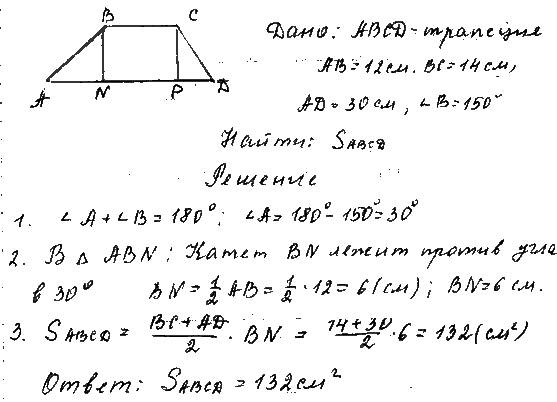 B C
A N P D
Дано: ABCD-трапеция
AB=12см. BC=14см,
AD=30см, ∠B=150°
Найти: SABCD
Решение
1. ∠A+∠B=180°; ∠A=180°-150°=30°
2. В △ ABN: Катет BN лежит против угла
в 30° BN=1/2 AB=1/2·12=6(см); BN=6см.
3. SABCD = BC+AD/2 · BN = 14+30/2 ·6=132(см²)
Ответ: SABCD=132см²